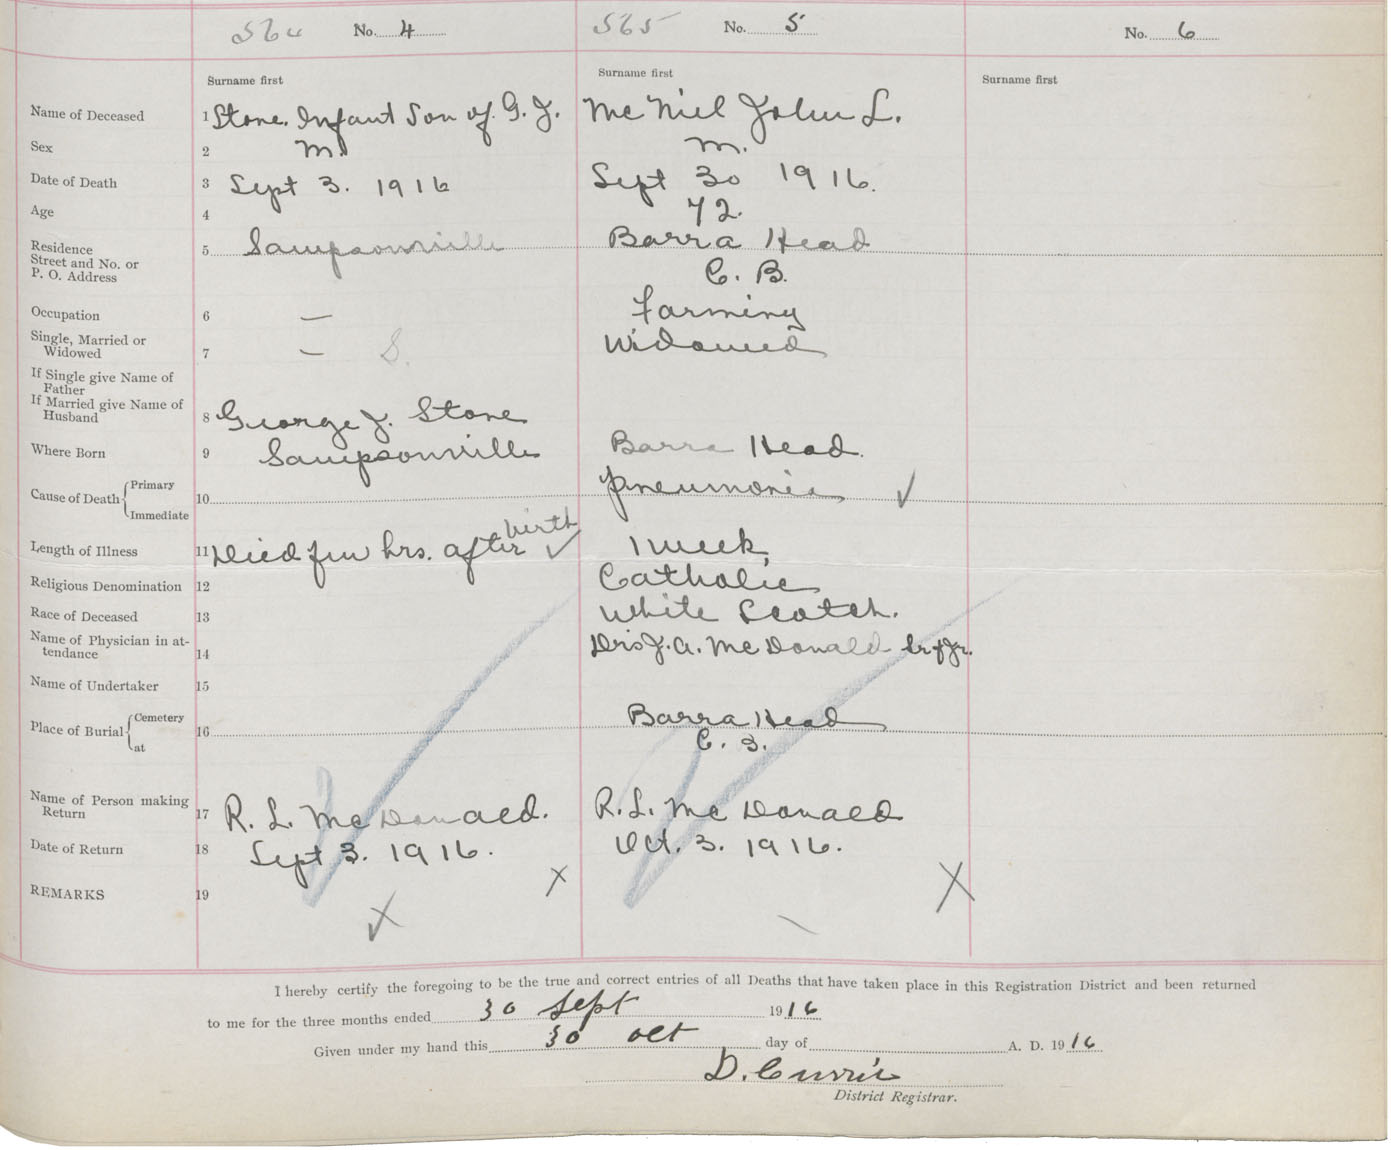 564 No. 4 565 No. 5 No. 6
Surname first Surname first Surname first
Name of Deceased 1 Stone. Infant Son of G. J. McNiel John L.
Sex 2 M. M.
Date of Death 3 Sept 3. 1916 Sept 30 1916.
Age 4 72.
Residence
Street and No. or
P. O. Address 5 Sampsonville Barra Head
C. B.
Occupation 6 — Farming
Single, Married or
Widowed 7 — S. Widowed
If Single give Name of
Father
If Married give Name of
Husband 8 George J. Stone
Where Born 9 Sampsonville Barra Head.
Cause of Death { Primary
Immediate 10 Pneumonia ✓
Length of Illness 11 Died few hrs. after birth ✓ 1 week
Religious Denomination 12 Catholic
Race of Deceased 13 White Scotch.
Name of Physician in at-
tendance 14 Drs J. A. McDonald Sr & Jr.
Name of Undertaker 15
Place of Burial { Cemetery
at 16 Barra Head
C. B.
Name of Person making
Return 17 R. L. McDonald. R. L. McDonald
Date of Return 18 Sept 3. 1916. Oct. 3. 1916.
REMARKS 19 X X
X
I hereby certify the foregoing to be the true and correct entries of all Deaths that have taken place in this Registration District and been returned
to me for the three months ended 30 Sept 1916
Given under my hand this 30 Oct day of A. D. 1916
D. Currie
District Registrar.